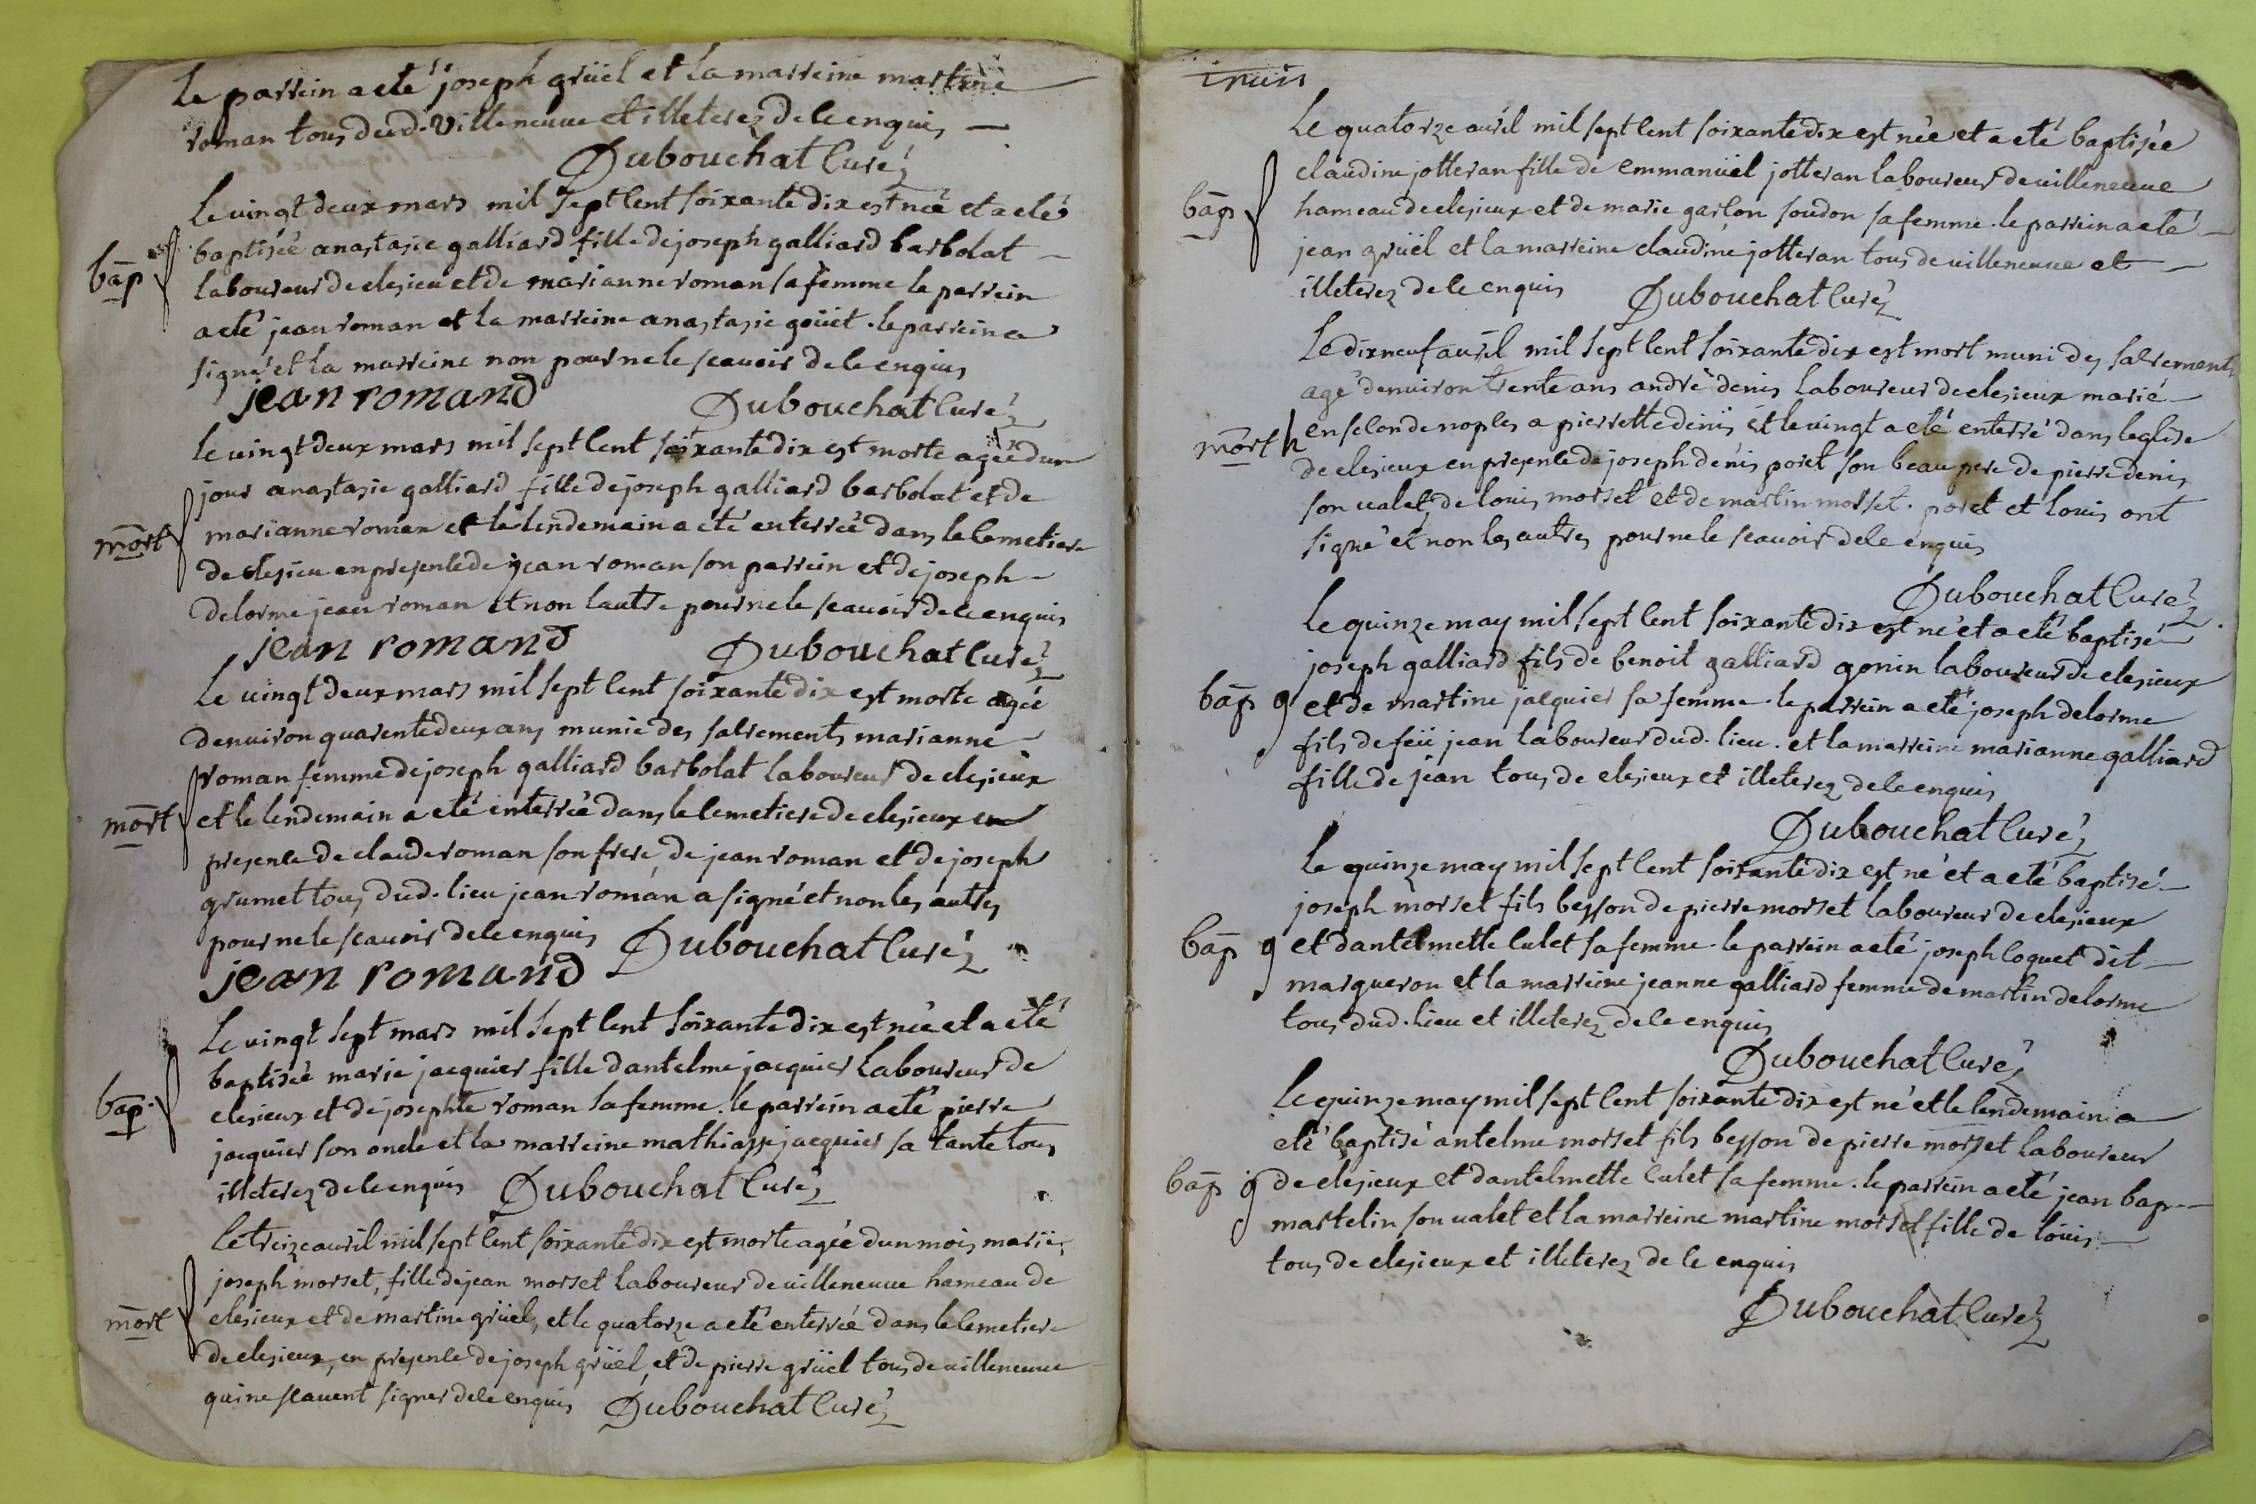 le parrein a eté joseph grüel et la marreine martine
roman tous dud. villeneuve et illeterez de ce enquis
Dubouchat Curé
le vingt deux mars mil sept cent soixante dix est née et a eté
baptisée anastasie galliard fille de joseph galliard barbolat
bap laboureur de clesieu et de marianne roman sa femme le parrein
a eté jean roman et la marreine anastasie goüet . le parrein a
signé et la marreine non pour ne le scavoir de ce enquis
jean romand Dubouchat Curé
le vingt deux mars mil sept cent soixante dix est morte agée dun
jour anastasie galliard fille de joseph galliard barbolat et de
mort marianne roman et le lendemain a eté enterrée dans le cemetiere
de clesieu en presence de jean roman son parrein et de joseph
delorme jean roman et non lautre pour ne le scavoir de ce enquis
jean romand Dubouchat Curé
le vingt deux mars mil sept cent soixante dix est morte agée
denviron quarente deux ans munie des sacrements marianne
roman femme de joseph galliard barbolat laboureur de clesieux
mort et le lendemain a eté enterrée dans le cemetiere de clesieux en
presence de claude roman son frere, de jean roman et de joseph
grumet tous dud. lieu jean roman a signé et non les autres
pour ne le scavoir de ce enquis Dubouchat Curé
jean romand
le vingt sept mars mil sept cent soixante dix est née et a eté
baptisée marie jacquier fille dantelme jacquier laboureur de
bap. clesieux et de josephte roman sa femme . le parrein a eté pierre
jacquier son oncle et la marreine mathiasse jacquier sa tante tous
illeterez de ce enquis Dubouchat Curé
le treize avril mil sept cent soixante dix est morte agée dun mois marie
joseph morset, fille de jean morset laboureur de villeneuve hameau de
mort clesieux et de martine grüel, et le quatorze a eté enterrée dans le cemetiere
de clesieux, en presence de joseph grüel, et de pierre grüel tous de villeneuve
qui ne scavent signer de ce enquis Dubouchat Curé
trois
le quatorze avril mil sept cent soixante dix est née et a eté baptisée
claudine jotteran fille de emmanüel jotteran laboureur de villeneuve
bap hameau de clesieux et de marie garlon soudon sa femme . le parrein a eté
jean grüel et la marreine claudine jotteran tous de villeneuve et
illeterez de ce enquis Dubouchat Curé
Le dixneuf avril mil sept cent soixante dix est mort muni des sacrements
agé denviron trente ans andré denis laboureur de clesieux marié
mort en secondes noples a pierrette denis et le vingt a eté enterré dans leglise
de clesieux en presence de joseph denis poret son beau pere de pierre denis
son valet, de louis morset et de martin morset . poret et louis ont
signé et non les autres pour ne le scavoir de ce enquis
Dubouchat Curé
le quinze may mil sept cent soixante dix est né et a eté baptisé
joseph galliard fils de benoit galliard gonin laboureur de clesieux
bap g et de martine jacquier sa femme . le parrein a eté joseph delorme
fils de feü jean laboureur dud. lieu . et la marreine marianne galliard
fille de jean tous de clesieux et illeterez de ce enquis
Dubouchat Curé
le quinze may mil sept cent soixante dix est né et a eté baptisé
joseph morset fils besson de pierre morset laboureur de clesieux
bap g et dantelmette culet sa femme . le parrein a eté joseph Coquet dit
marqueron et la marreine jeanne galliard femme de martin delorme
tous dud. lieu et illeterez de ce enquis
Dubouchat Curé
le quinze may mil sept cent soixante dix est né et le lendemain a
eté baptisé antelme morset fils besson de pierre morset laboureur
bap g de clesieux et dantelmette culet sa femme . le parrein a eté jean bap
martelin son valet et la marreine martine morset fille de louis
tous de clesieux et illeterez de ce enquis
Dubouchat Curé